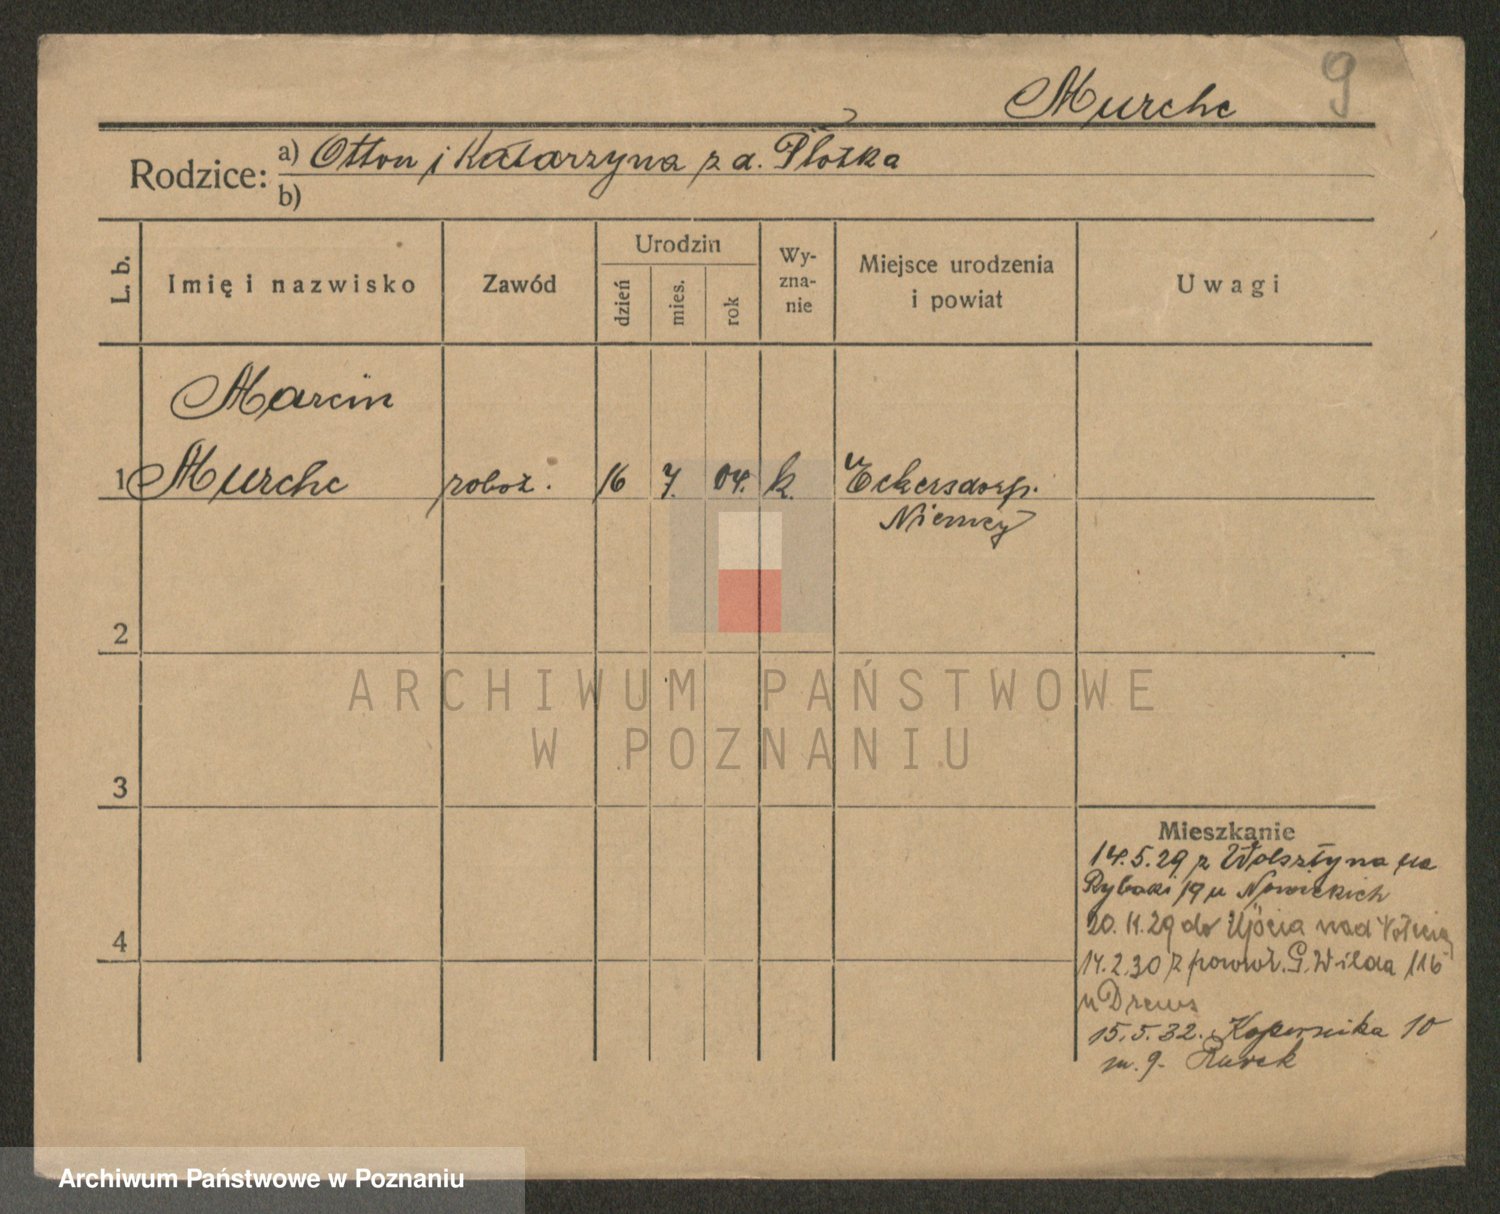 Murche
9
Rodzice: a) Otton i Katarzyna z d. Plotzka
b)
L. b.
Imię i nazwisko
Zawód
Urodzin
dzień
mies.
rok
Wy-
zna-
nie
Miejsce urodzenia
i powiat
Uwagi
Marcin
1 Murche robot. 16 7. 04. k. Eckersdorf.
Niemcy
2
3
4
Mieszkanie
14.5.29 z Wolsztyna na
Rybaki 19 u Nowickich
20.11.29 do Ujścia nad Notecią
14.2.30 z powrot. G. Wilda 116
u Drews
15.5.32. Kopernika 10
m. 9. Żurek
ARCHIWUM PAŃSTWOWE
W POZNANIU
Archiwum Państwowe w Poznaniu